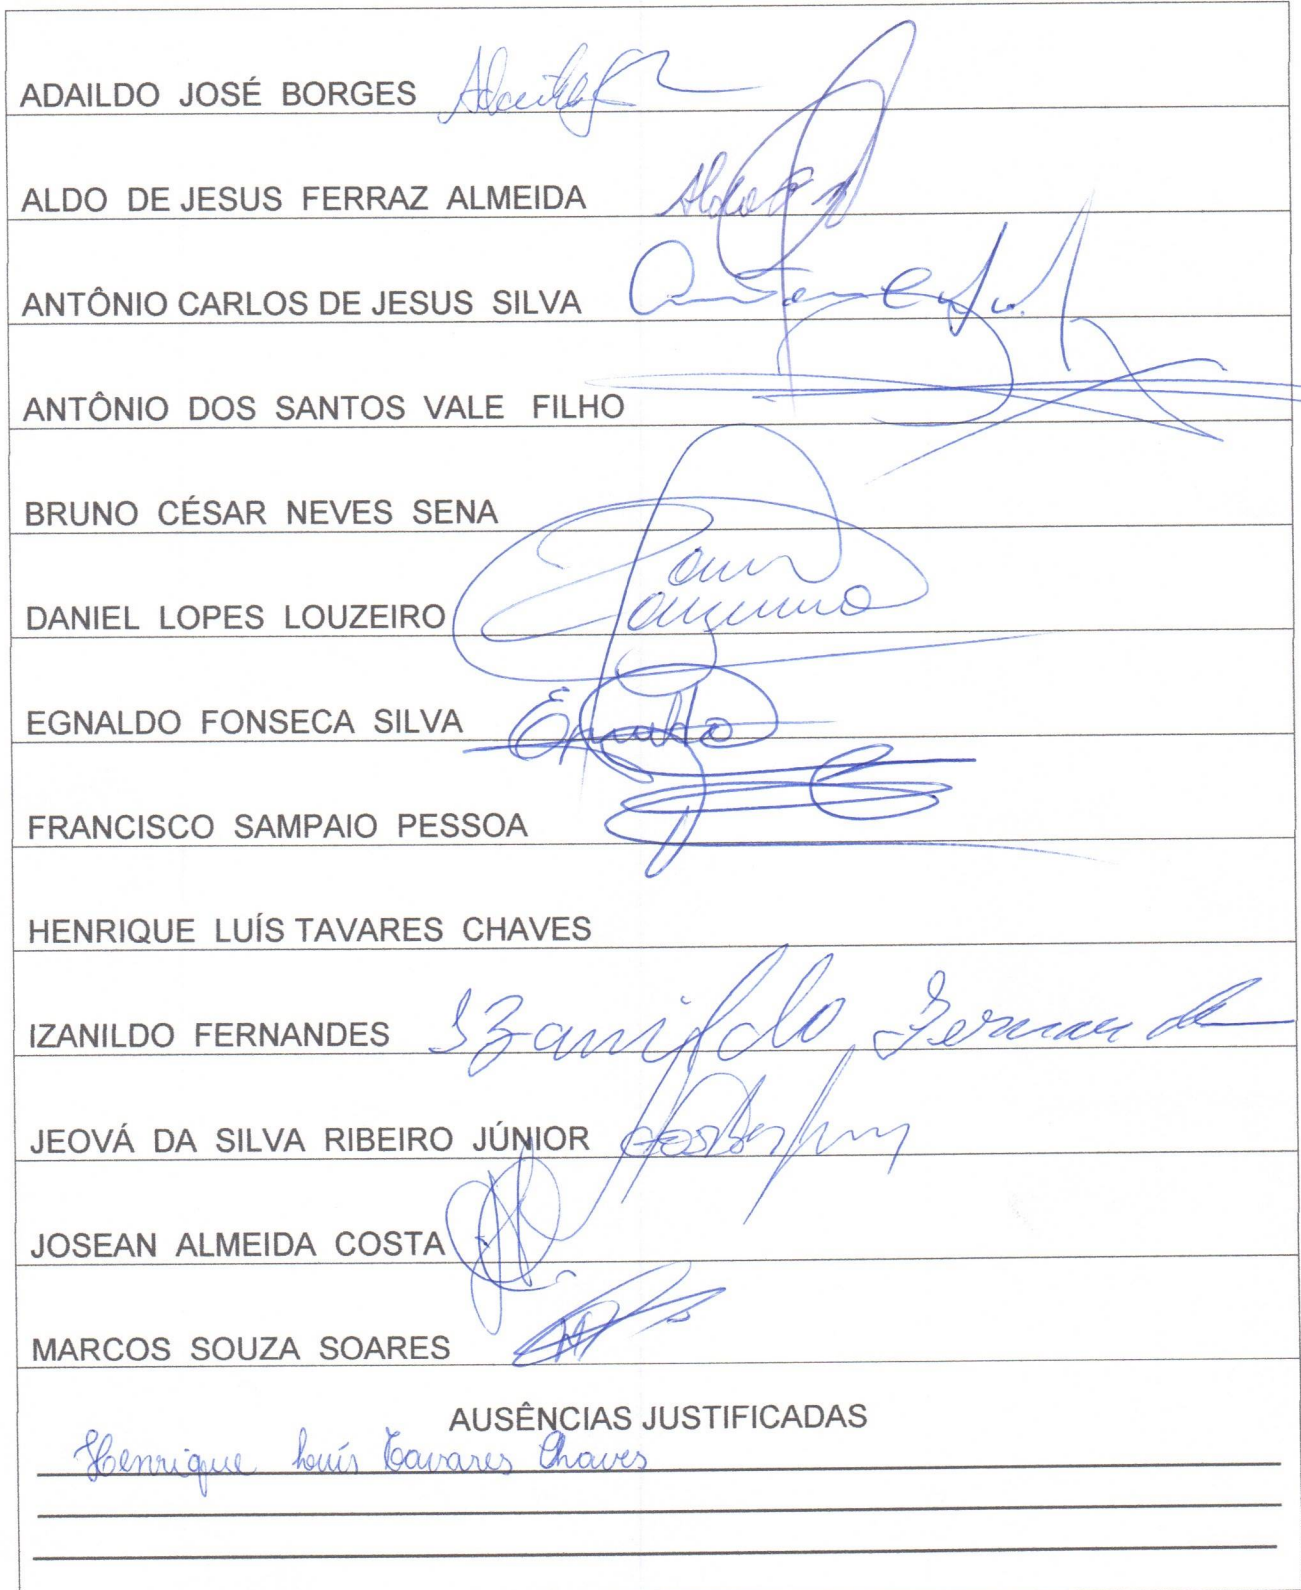 ADAILDO JOSÉ BORGES
ALDO DE JESUS FERRAZ ALMEIDA
ANTÔNIO CARLOS DE JESUS SILVA
ANTÔNIO DOS SANTOS VALE FILHO
BRUNO CÉSAR NEVES SENA
DANIEL LOPES LOUZEIRO
EGNALDO FONSECA SILVA
FRANCISCO SAMPAIO PESSOA
HENRIQUE LUÍS TAVARES CHAVES
IZANILDO FERNANDES Izanildo Fernandes
JEOVÁ DA SILVA RIBEIRO JÚNIOR
JOSEAN ALMEIDA COSTA
MARCOS SOUZA SOARES
AUSÊNCIAS JUSTIFICADAS
Henrique Luís Tavares Chaves